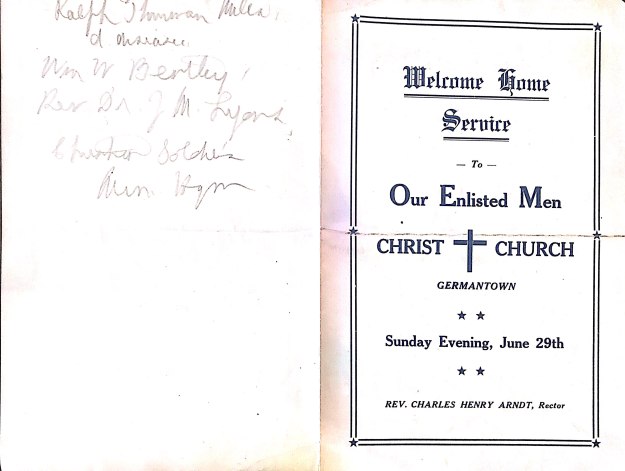 Ralph
Wm W Bentley
Rev Dr J M Lyons
Christian Soldiers
Welcome Home
Service
— To —
Our Enlisted Men
CHRIST CHURCH
GERMANTOWN
Sunday Evening, June 29th
REV. CHARLES HENRY ARNDT, Rector